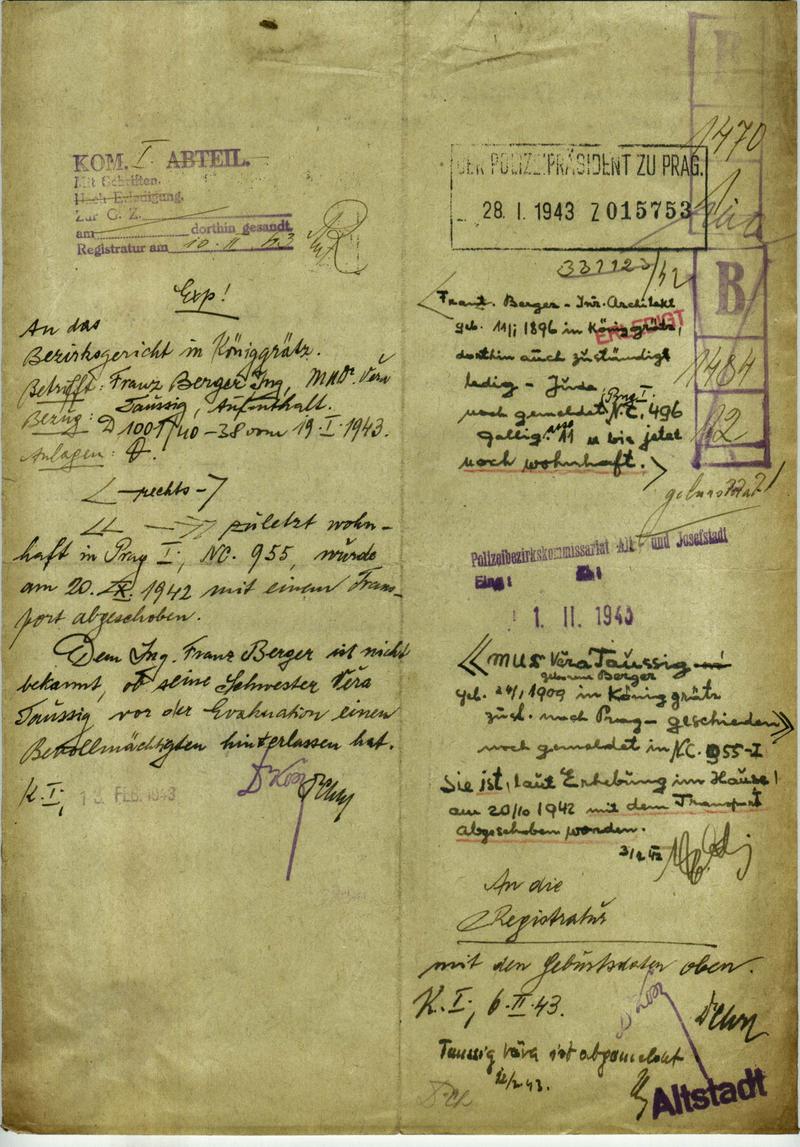 KOM. I. ABTEIL.
Mit Schriften.
Nach Erledigung.
Zur G. Z.
am dorthin gesandt.
Registratur am 10. II. 43
Exp!
An das
Bezirksgericht in Königgrätz.
Betrifft: Franz Berger Ing, MUDr Vera
Taussig, Aufenthalt.
Bezug: D 1001/40 – 38 vom 19. I. 1943.
Anlagen: 0.
<– rechts –>
<< –– >> zuletzt wohn-
haft in Prag I., NC. 955, wurde
am 20. X. 1942 mit einem Trans-
port abgeschoben.
Dem Ing. Franz Berger ist nicht
bekannt, ob seine Schwester Věra
Taussig vor der Evakuation einen
Bevollmächtigten hinterlassen hat.
K. I., 13. FEB. 1943
DER POLIZEIPRÄSIDENT ZU PRAG.
28. I. 1943 Z 015753
B
1470
B
1484
12
< Franz. Berger – Inž. Architekt
geb. 11/i 1896 in Königgrätz,
ERLEDIGT
dorthin auch zuständig
ledig – Jude
noch gemeldet NC. 496
Prag I.
Gallig. 11 u bis jetzt
noch wohnhaft. >
Polizeibezirkskommissariat Alt- und Josefstadt
Eing:
1. II. 1943
<< MUC Věra Taussig
geborene Berger
geb. 1909 in Königgrätz
zust. nach Prag – geschieden >>
noch gemeldet in NC. 955-I
Sie ist, laut Erhebung im Hause!
am 20/10 1942 mit dem Transport
abgeschoben worden.
An die
Registratur
mit den Geburtsdaten oben.
K. I., 6. II. 43.
Taussig Věra ist abgemeldet
43.
Altstadt